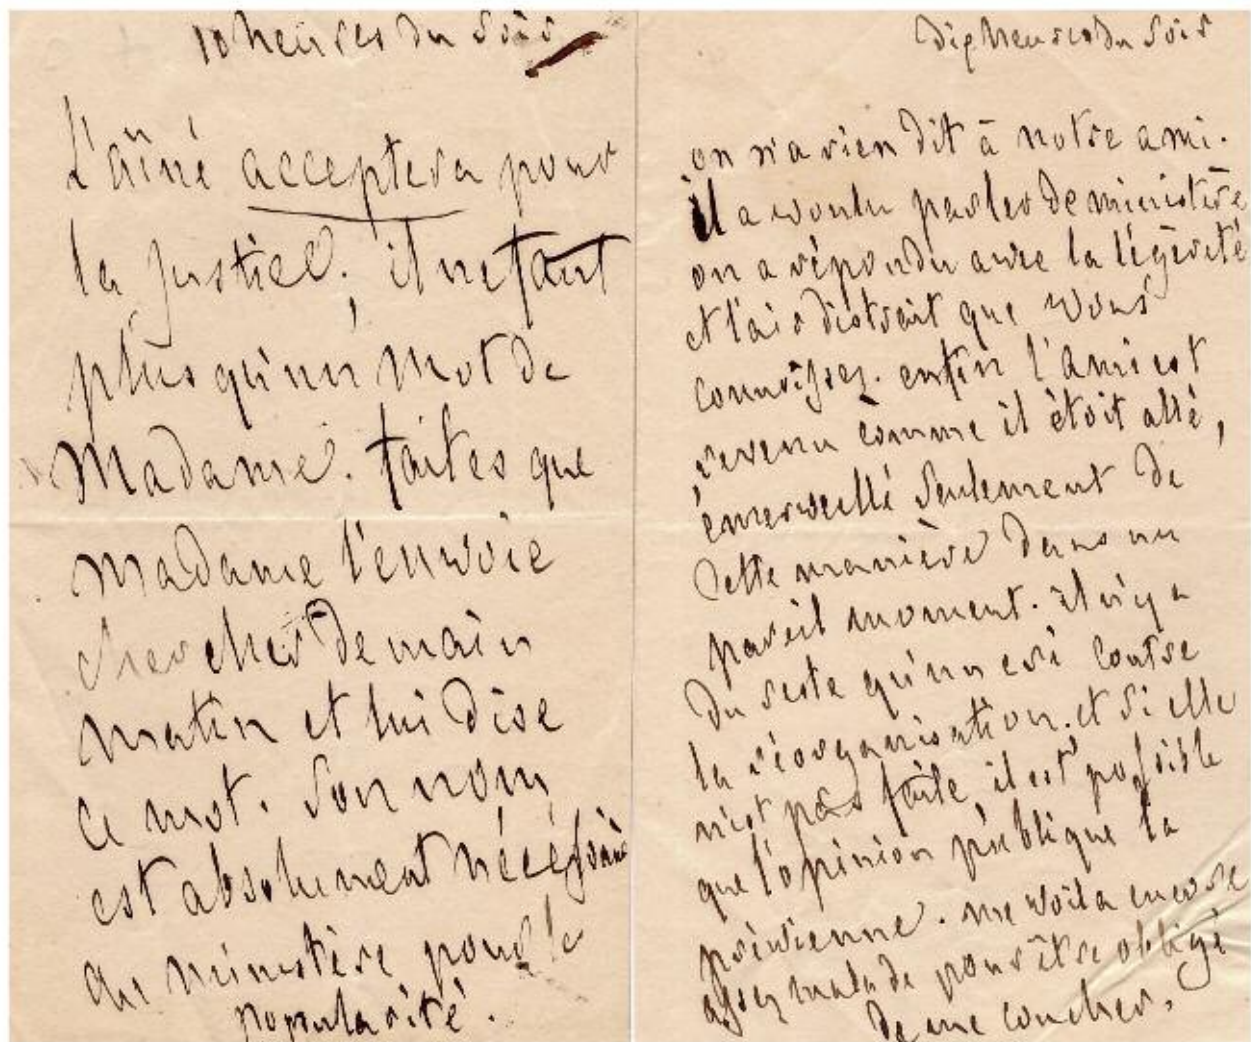 10 heures du soir
L'aîné acceptera pour
la justice; il ne faut
plus qu'un mot de
Madame. faites que
madame l'envoie
chercher demain
matin et lui dise
ce mot. Son nom
est absolument nécessaire
au ministère pour la
popularité.
dix heures du soir
on n'a rien dit à notre ami.
il a voulu parler de ministère
on a répondu avec la légèreté
et l'air distrait que vous
connoissez. enfin l'ami est
revenu comme il étoit allé,
émerveillé seulement de
cette manière dans un
pareil moment. il n'y a
du reste qu'un cri contre
la réorganisation. et si elle
n'est pas faite, il est possible
que l'opinion publique la
prévienne. me voilà encore
assez malade pour être obligé
de me coucher.